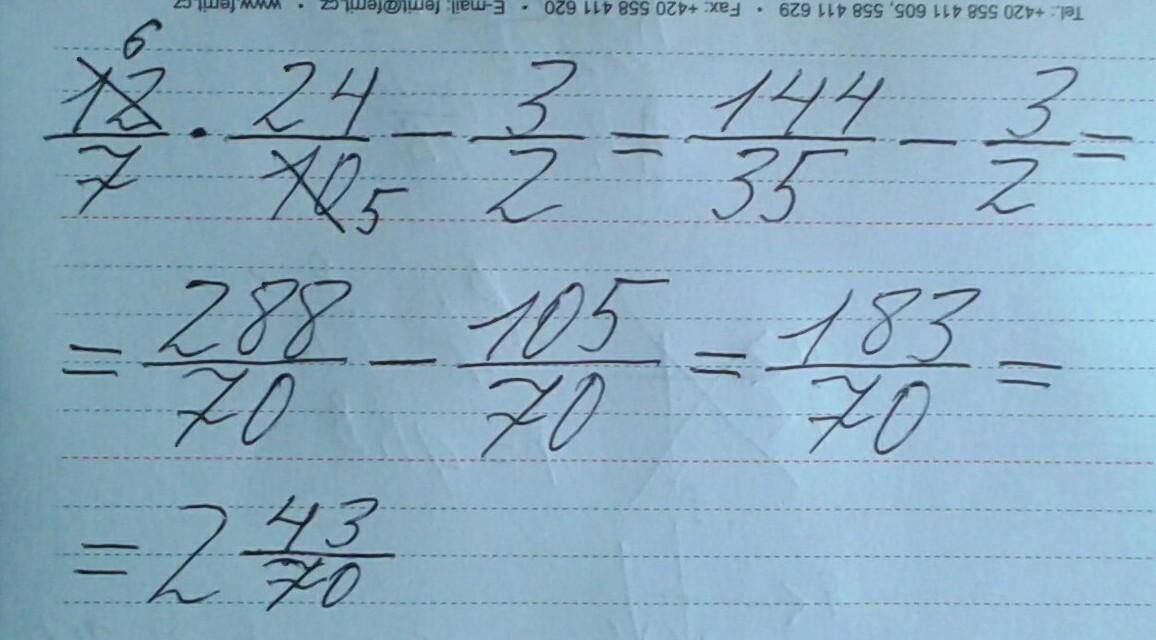 Tel.: +420 558 411 605, 558 411 629 • Fax: +420 558 411 620 • E-mail: femit@femit.cz • www.femit.cz
6
12/7 · 24/10 5 − 3/2 = 144/35 − 3/2 =
= 288/70 − 105/70 = 183/70 =
= 2 43/70